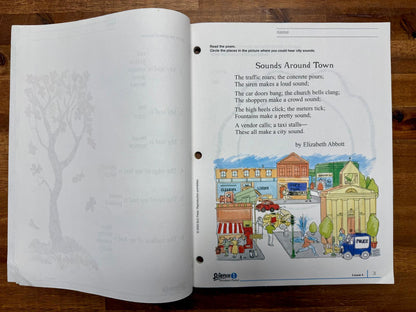 name
Read the poem.
Circle the places in the picture where you could hear city sounds.
Sounds Around Town
The traffic roars; the concrete pours;
The siren makes a loud sound;
The car doors bang; the church bells clang;
The shoppers make a crowd sound;
The high heels click; the meters tick;
Fountains make a pretty sound;
A vendor calls; a taxi stalls—
These all make a city sound.
by Elizabeth Abbott
CLEANERS
POLICE
Science
3